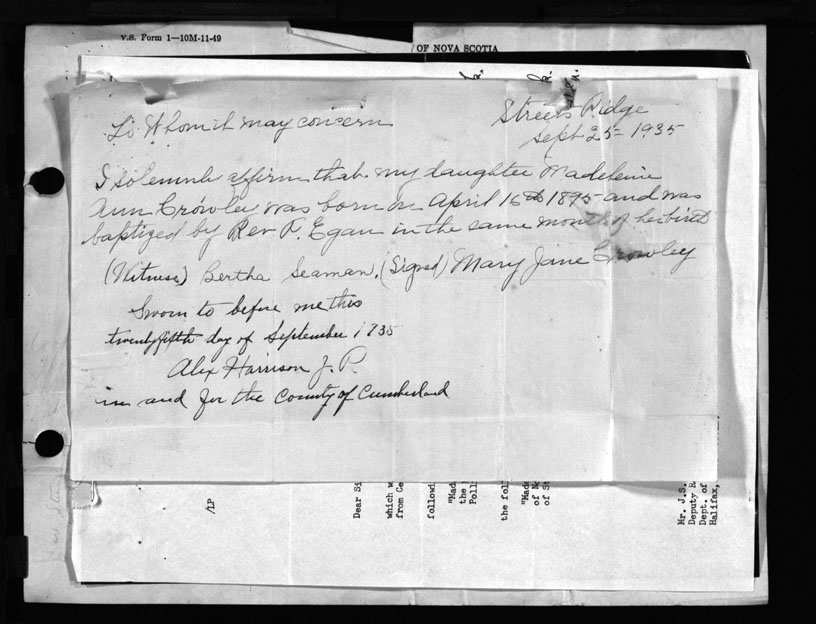 V.S. Form 1—10M-11-49
OF NOVA SCOTIA
Streets Ridge
Sept 25 - 1935
To Whom it may concern
I solemnly affirm that my daughter Madeleine
Ann Crowley was born on April 16th 1895 and was
baptized by Rev P. Egan in the same month of her birth
(Witness) Bertha Seaman. (Signed) Mary Jane Crowley
Sworn to before me this
twenty fifth day of September 1935
Alex Harrison J. P.
in and for the County of Cumberland
/LP
Dear Si
which w
from Ce
followi
"Mad
the
Poll
the fol
"Made
of N
of St
Mr. J.S.
Deputy R
Dept. of
Halifax,